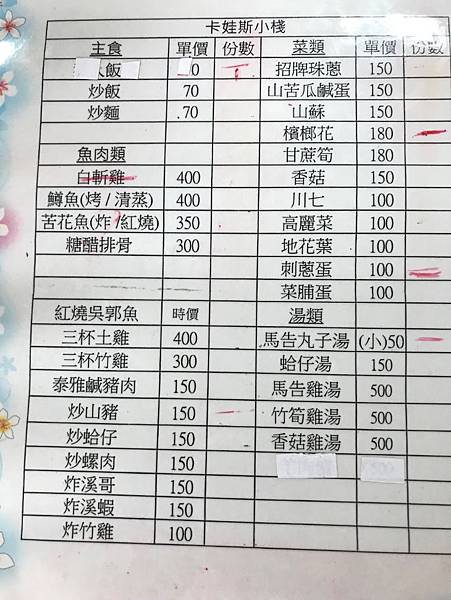 卡娃斯小棧
主食 單價 份數 菜類 單價 份數
飯 0 招牌珠蔥 150
炒飯 70 山苦瓜鹹蛋 150
炒麵 70 山蘇 150
檳榔花 180
魚肉類 甘蔗筍 180
白斬雞 400 香菇 150
鱒魚(烤/清蒸) 400 川七 100
苦花魚(炸/紅燒) 350 高麗菜 100
糖醋排骨 300 地花葉 100
刺蔥蛋 100
菜脯蛋 100
紅燒吳郭魚 時價 湯類
三杯土雞 400 馬告丸子湯 (小)50
三杯竹雞 300 蛤仔湯 150
泰雅鹹豬肉 150 馬告雞湯 500
炒山豬 150 竹筍雞湯 500
炒蛤仔 150 香菇雞湯 500
炒螺肉 150 500
炸溪哥 150
炸溪蝦 150
炸竹雞 100